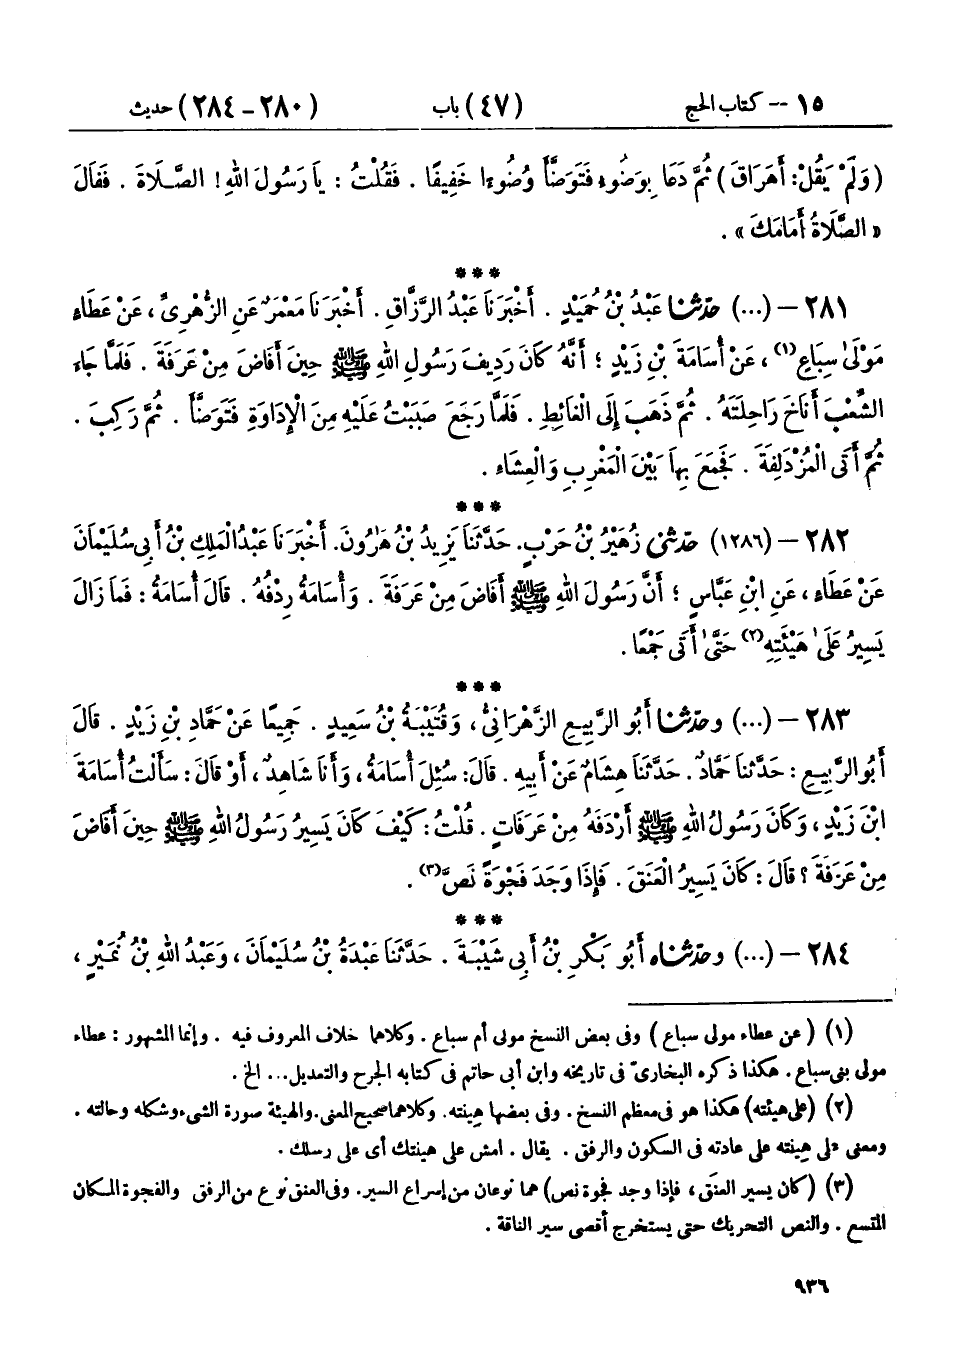 ١٥ -- كتاب الحج (٤٧) باب (٢٨٠ - ٢٨٤) حديث
(وَلَمْ يَقُلْ: أَهَرَاقَ) ثُمَّ دَعَا بِوَضُوءٍ فَتَوَضَّأَ وُضُوءًا خَفِيفًا . فَقُلْتُ : يَا رَسُولَ اللهِ ! الصَّلَاةَ . فَقَالَ
« الصَّلَاةُ أَمَامَكَ » .
***
٢٨١ – (...) حدّثنا عَبْدُ بْنُ حُمَيْدٍ . أَخْبَرَنَا عَبْدُ الرَّزَّاقِ . أَخْبَرَنَا مَعْمَرٌ عَنِ الزُّهْرِيِّ ، عَنْ عَطَاءٍ
مَوْلَىٰ سِبَاعٍ(١) ، عَنْ أُسَامَةَ بْنِ زَيْدٍ ؛ أَنَّهُ كَانَ رَدِيفَ رَسُولِ اللهِ ﷺ حِينَ أَفَاضَ مِنْ عَرَفَةَ . فَلَمَّا جَاءَ
الشِّعْبَ أَنَاخَ رَاحِلَتَهُ . ثُمَّ ذَهَبَ إِلَى الْغَائِطِ . فَلَمَّا رَجَعَ صَبَبْتُ عَلَيْهِ مِنَ الْإِدَاوَةِ فَتَوَضَّأَ . ثُمَّ رَكِبَ .
ثُمَّ أَتَى الْمُزْدَلِفَةَ . فَجَمَعَ بِهَا بَيْنَ الْمَغْرِبِ وَالْعِشَاءِ .
***
٢٨٢ – (١٢٨٦) حدّثني زُهَيْرُ بْنُ حَرْبٍ. حَدَّثَنَا يَزِيدُ بْنُ هَارُونَ. أَخْبَرَنَا عَبْدُ الْمَلِكِ بْنُ أَبِي سُلَيْمَانَ
عَنْ عَطَاءٍ ، عَنِ ابْنِ عَبَّاسٍ ؛ أَنَّ رَسُولَ اللهِ ﷺ أَفَاضَ مِنْ عَرَفَةَ . وَأُسَامَةُ رِدْفُهُ . قَالَ أُسَامَةُ : فَمَا زَالَ
يَسِيرُ عَلَىٰ هَيْئَتِهِ(٢) حَتَّىٰ أَتَى جَمْعًا .
***
٢٨٣ – (...) وحدّثنا أَبُو الرَّبِيعِ الزَّهْرَانِيُّ ، وَقُتَيْبَةُ بْنُ سَعِيدٍ . جَمِيعًا عَنْ حَمَّادِ بْنِ زَيْدٍ . قَالَ
أَبُو الرَّبِيعِ : حَدَّثَنَا حَمَّادٌ . حَدَّثَنَا هِشَامٌ عَنْ أَبِيهِ . قَالَ: سُئِلَ أُسَامَةُ ، وَأَنَا شَاهِدٌ ، أَوْ قَالَ : سَأَلْتُ أُسَامَةَ
ابْنَ زَيْدٍ ، وَكَانَ رَسُولُ اللهِ ﷺ أَرْدَفَهُ مِنْ عَرَفَاتٍ . قُلْتُ : كَيْفَ كَانَ يَسِيرُ رَسُولُ اللهِ ﷺ حِينَ أَفَاضَ
مِنْ عَرَفَةَ ؟ قَالَ : كَانَ يَسِيرُ الْعَنَقَ . فَإِذَا وَجَدَ فَجْوَةً نَصَّ(٣) .
***
٢٨٤ – (...) وحدّثناه أَبُو بَكْرِ بْنُ أَبِي شَيْبَةَ . حَدَّثَنَا عَبْدَةُ بْنُ سُلَيْمَانَ ، وَعَبْدُ اللهِ بْنُ نُمَيْرٍ ،
(١) (عن عطاء مولى سباع) وفى بعض النسخ مولى أم سباع . وكلاهما خلاف المعروف فيه . وإنما المشهور : عطاء
مولى بنى سباع . هكذا ذكره البخارىّ فى تاريخه وابن أبى حاتم فى كتابه الجرح والتعديل... الخ .
(٢) (على هيئته) هكذا هو فى معظم النسخ . وفى بعضها هِينته. وكلاهما صحيح المعنى. والهيئة صورة الشىء وشكله وحالته .
ومعنى على هينته على عادته فى السكون والرفق . يقال . امش على هينتك أى على رسلك .
(٣) (كان يسير العنَق ، فإذا وجد فجوة نص) هما نوعان من إسراع السير. وفى العنق نوع من الرفق والفجوة المكان
المتسع . والنص التحريك حتى يستخرج أقصى سير الناقة .
٩٣٦